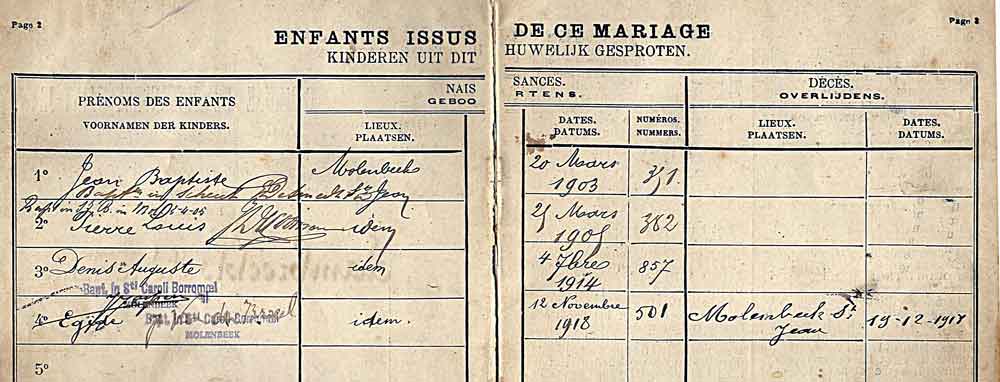 Page 2
Page 3
ENFANTS ISSUS DE CE MARIAGE
KINDEREN UIT DIT HUWELIJK GESPROTEN.
PRÉNOMS DES ENFANTS
VOORNAMEN DER KINDERS.
NAISSANCES.
GEBOORTENS.
DÉCÈS.
OVERLIJDENS.
LIEUX.
PLAATSEN.
DATES.
DATUMS.
NUMÉROS.
NUMMERS.
LIEUX.
PLAATSEN.
DATES.
DATUMS.
1º Jean Baptiste Molenbeek 20 Mars 1903 351
St Jean
2º Pierre Louis idem 25 Mars 1905 362
3º Denis Auguste idem 4 7bre 1914 857
Bapt. in Sti Caroli Borromei
MOLENBEEK
4º Egide idem. 12 Novembre 1918 501 Molenbeek St Jean 19-12-1918
Bapt. in Sti Caroli Borromei
MOLENBEEK
5º